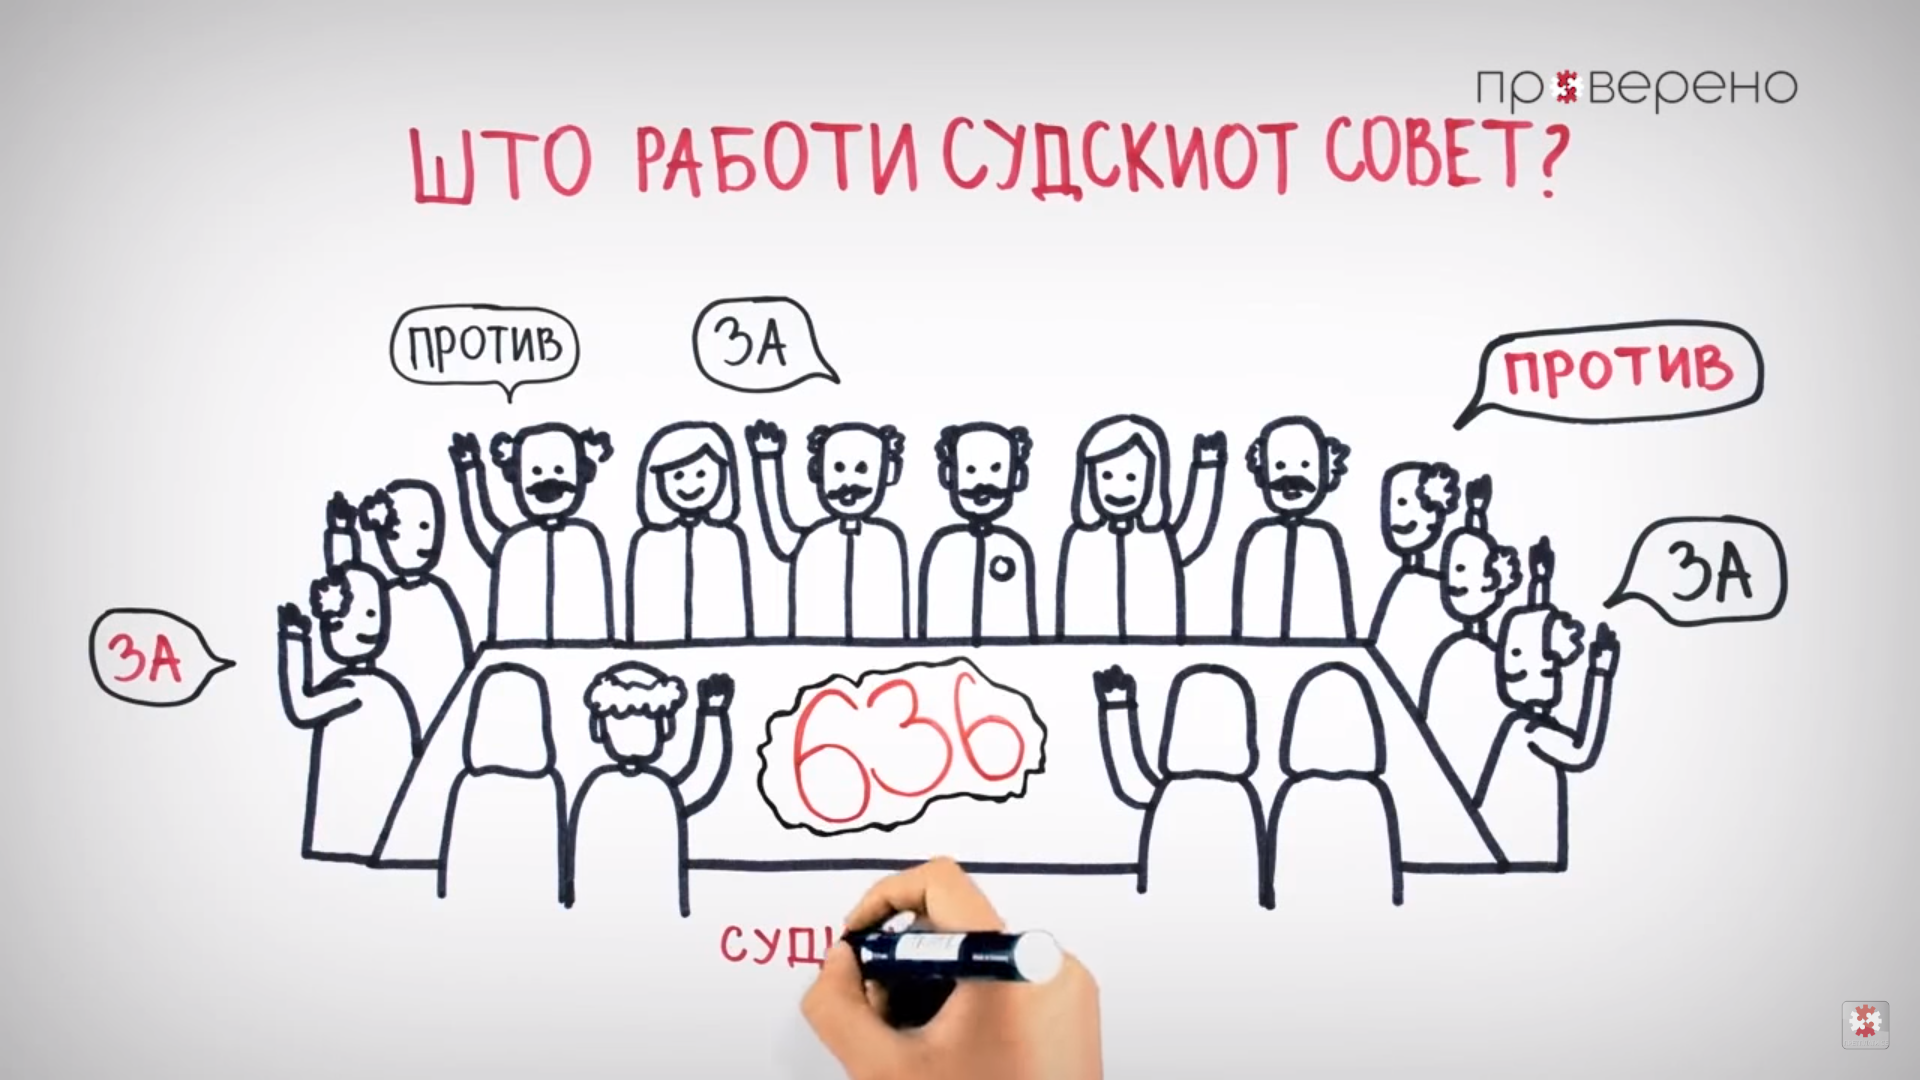 проверено
ШТО РАБОТИ СУДСКИОТ СОВЕТ?
ПРОТИВ
ЗА
ПРОТИВ
ЗА
ЗА
636